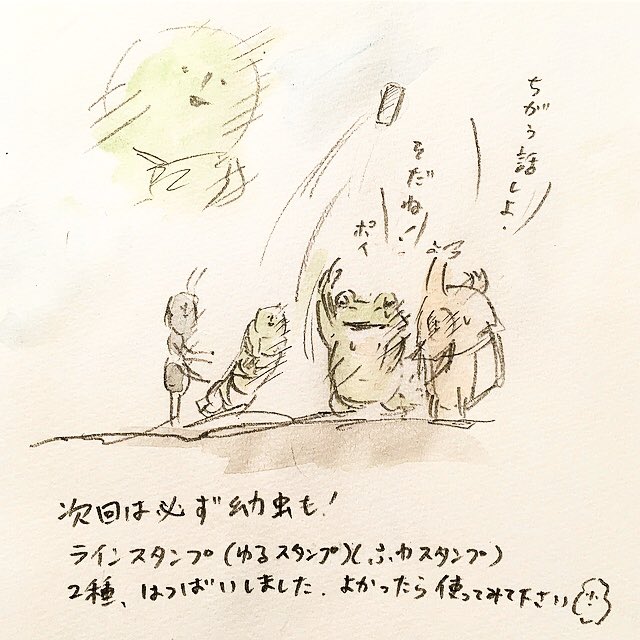 ちがう話しよ。
そだね!
ポイ
次回は必ず幼虫も!
ラインスタンプ(ゆるスタンプ)(ふわスタンプ)
2種、はつばいしました。よかったら使ってみて下さい